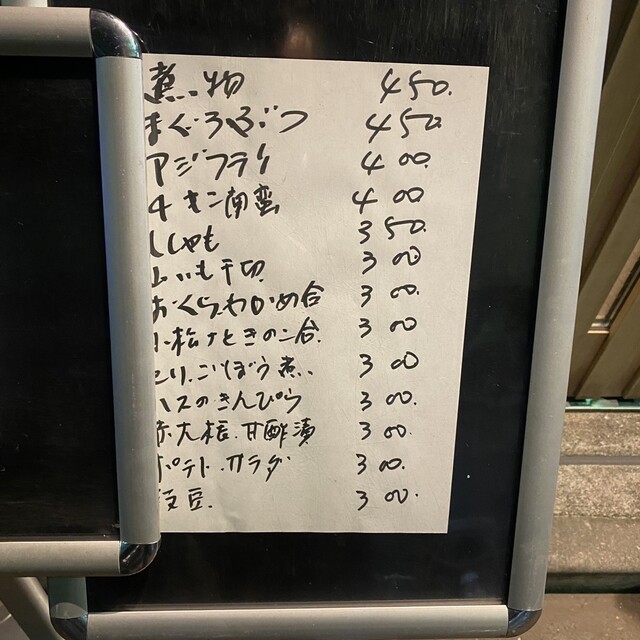 煮物 450.
まぐろぶつ 450.
アジフライ 400.
チキン南蛮 400
ししゃも 350.
山いも千切 300
おくら.わかめ合 300.
小松なときのこ合. 300
とり.ごぼう煮 300
ハスのきんぴら 300.
赤大根.甘酢漬 300.
ポテト.サラダ 300.
枝豆. 300.